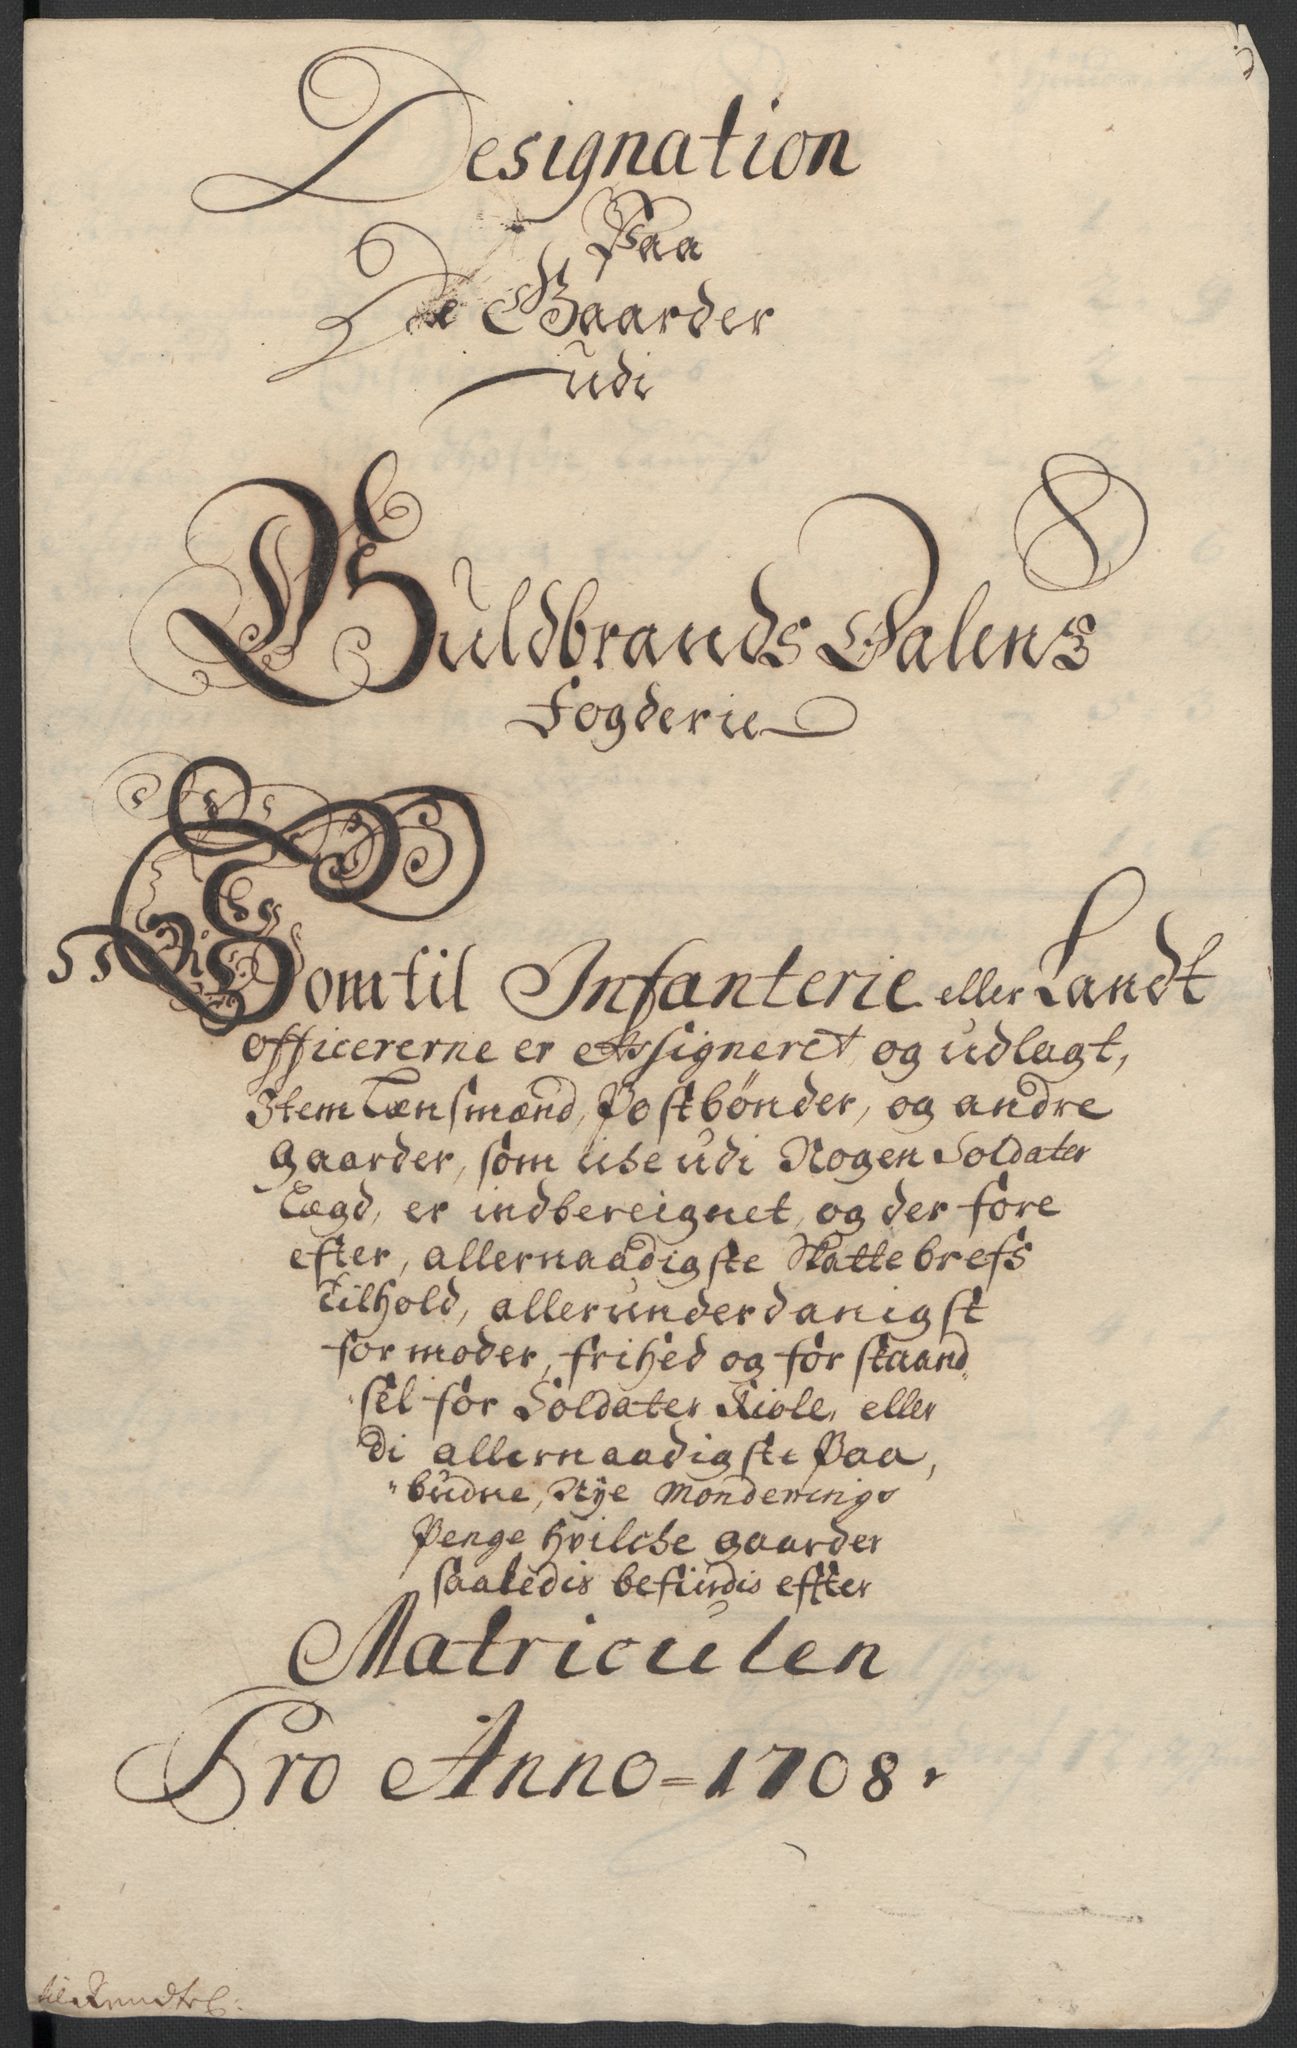 Designation
Paa
De Gaarder
udi
Guldbrands Dalens
Fogderie
Som til Infanterie eller Landt
officererne er Assigneret, og udlagt,
Item Lænsmænd, Postbønder, og andre
gaarder, som iche udi Nogen Soldater
Lægd, er indbereignet, og der fore
efter, allernaadigste Skatte brefs
Tilhold, allerunderdanigst
formoder, frihed og for staand,,
sel for Soldater Kiole, eller
di allernaadigste Paa,,
"budne, Nye Monderings
Penge hvilche gaarder
saaledis befindis effter
Matriculen
Pro Anno = 1708.